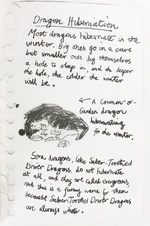 Dragon Hibernation
Most dragons hibernate in the
winter. Big ones go in a cave
but smaller ones dig themselves
a hole to sleep in, and the deeper
the hole, the colder the winter
will be.
← A Common-or-
Garden dragon
hibernating
for the winter.
Some dragons, like Saber-Toothed
Driver Dragons, do not hibernate
at all, and they are called evergreens,
and this is a funny name for them
because Saber-Toothed Driver Dragons
are always white.